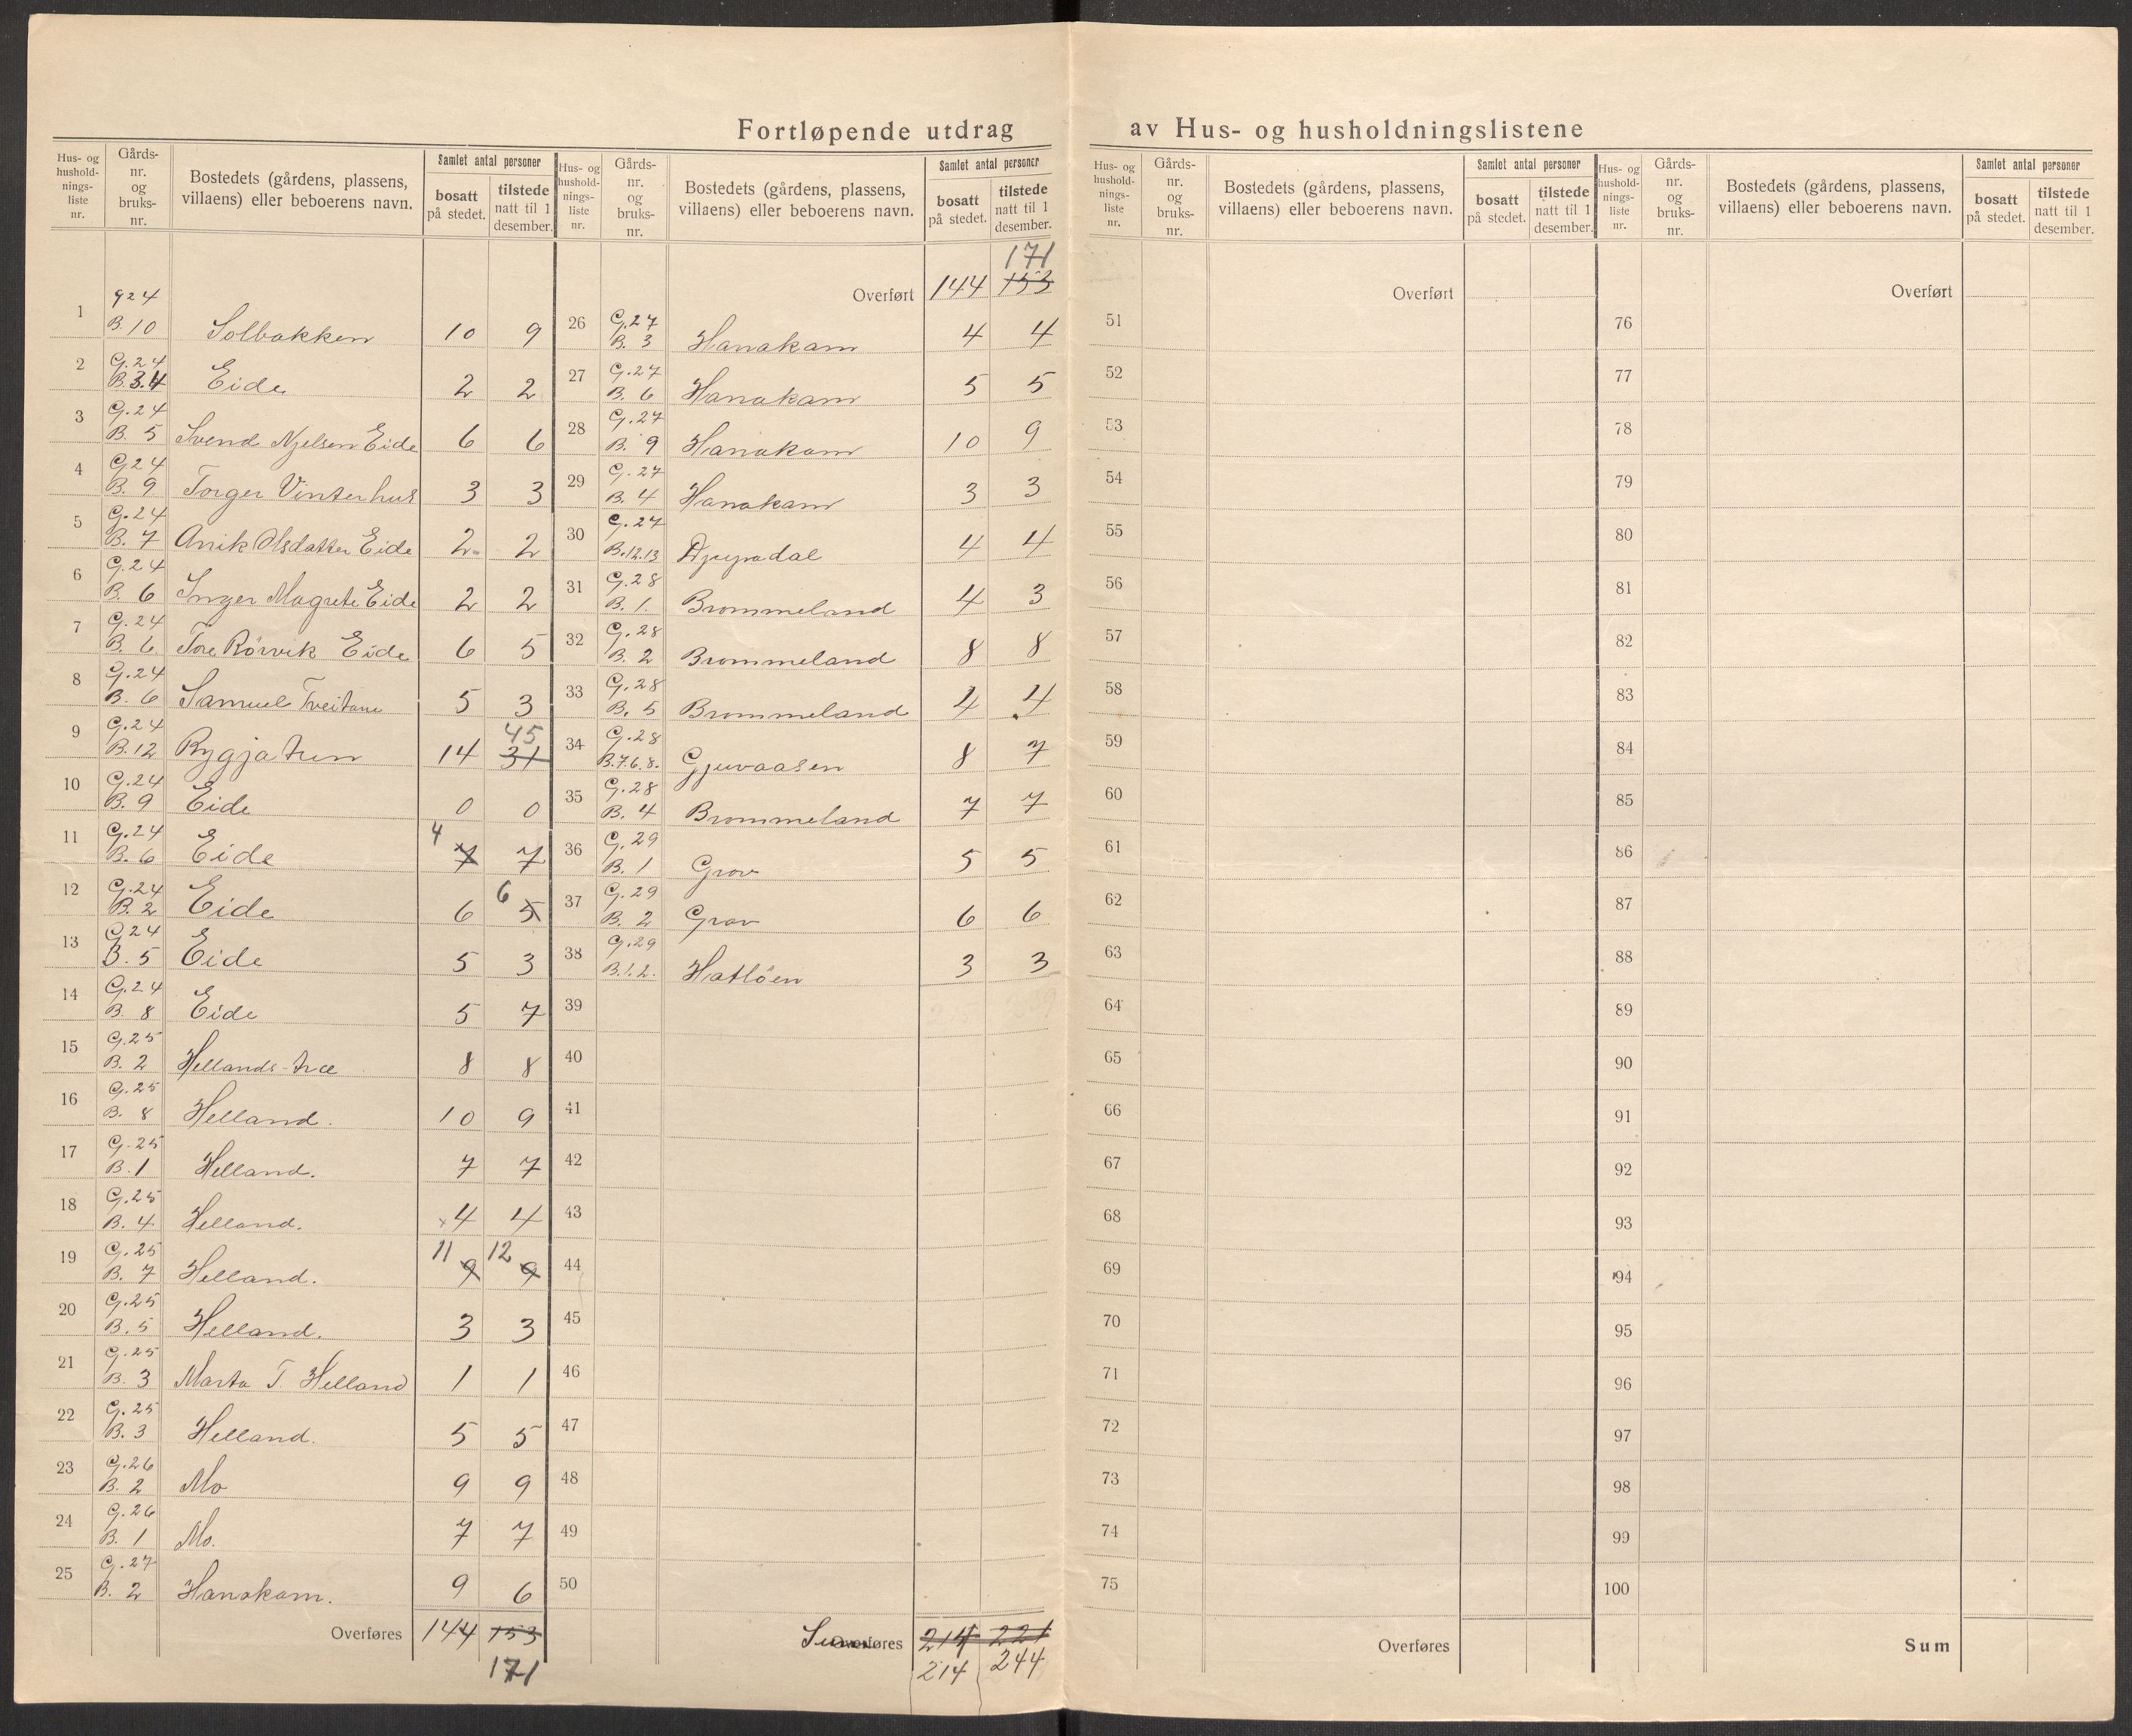 Fortløpende utdrag av Hus- og husholdningslistene
Hus- og hushold- nings- liste nr. Gårds- nr. og bruks- nr. Bostedets (gårdens, plassens, villaens) eller beboerens navn. Samlet antal personer bosatt på stedet. tilstede natt til 1 desember.
1 g24 B.10 Solbakken 10 9
2 G.24 B.3.4 Eide 2 2
3 G.24 B. 5 Svend Njelsen Eide 6 6
4 G24 B. 9 Torger Vinterhus 3 3
5 G.24 B. 7 Anik Olsdatter Eide 2 2
6 G.24 B. 6 Inger Magrete Eide 2 2
7 G.24 B. 6 Tore Rørvik Eide 6 5
8 G.24 B. 6 Samuel Tveitane 5 3
9 G.24 B.12 Rygjatun 14 31 45
10 G.24 B. 9 Eide 0 0
11 G.24 B. 6 Eide 4 7 7
12 G.24 B. 2 Eide 6 6 5
13 G24 B. 5 Eide 5 3
14 G.24 B. 8 Eide 5 7
15 G.25 B. 2 Hellands-træ 8 8
16 G.25 B. 8 Helland. 10 9
17 G.25 B.1 Helland. 7 7
18 G.25 B. 4 Helland. 4 4
19 G.25 B. 7 Helland. 11 9 12 9
20 G.25 B. 5 Helland. 3 3
21 G.25 B. 3 Marta T. Helland 1 1
22 G.25 B. 3 Helland. 5 5
23 G.26 B. 2 Mo 9 9
24 G.26 B. 1 Mo. 7 7
25 G.27 B. 2 Hanakam. 9 6
Overføres 144 153
171
Hus- og hushold- nings- liste nr. Gårds- nr. og bruks- nr. Bostedets (gårdens, plassens, villaens) eller beboerens navn. Samlet antal personer bosatt på stedet. tilstede natt til 1 desember.
171
Overført 144 153
26 G.27 B. 3 Hanakam 4 4
27 G.27 B. 6 Hanakam 5 5
28 G.27 B. 9 Hanakam 10 9
29 G.27 B. 4 Hanakam 3 3
30 G.27 B.12.13 Djupadal 4 4
31 G.28 B. 1. Brommeland 4 3
32 G.28 B. 2 Brommeland 8 8
33 G.28 B. 5 Brommeland 4 4
34 G.28 B.7.6.8. Gjuvaasen 8 7
35 G.28 B. 4 Brommeland 7 7
36 G.29 B. 1 Grov 5 5
37 G.29 B. 2 Grov 6 6
38 G.29 B.1.2. Hatløen 3 3
39
40
41
42
43
44
45
46
47
48
49
50
Sum Overføres 214 221
214 244
Hus- og hushold- nings- liste nr. Gårds- nr. og bruks- nr. Bostedets (gårdens, plassens, villaens) eller beboerens navn. Samlet antal personer bosatt på stedet. tilstede natt til 1 desember.
Overført
51
52
53
54
55
56
57
58
59
60
61
62
63
64
65
66
67
68
69
70
71
72
73
74
75
Overføres
Hus- og hushold- nings- liste nr. Gårds- nr. og bruks- nr. Bostedets (gårdens, plassens, villaens) eller beboerens navn. Samlet antal personer bosatt på stedet. tilstede natt til 1 desember.
Overført
76
77
78
79
80
81
82
83
84
85
86
87
88
89
90
91
92
93
94
95
96
97
98
99
100
Sum